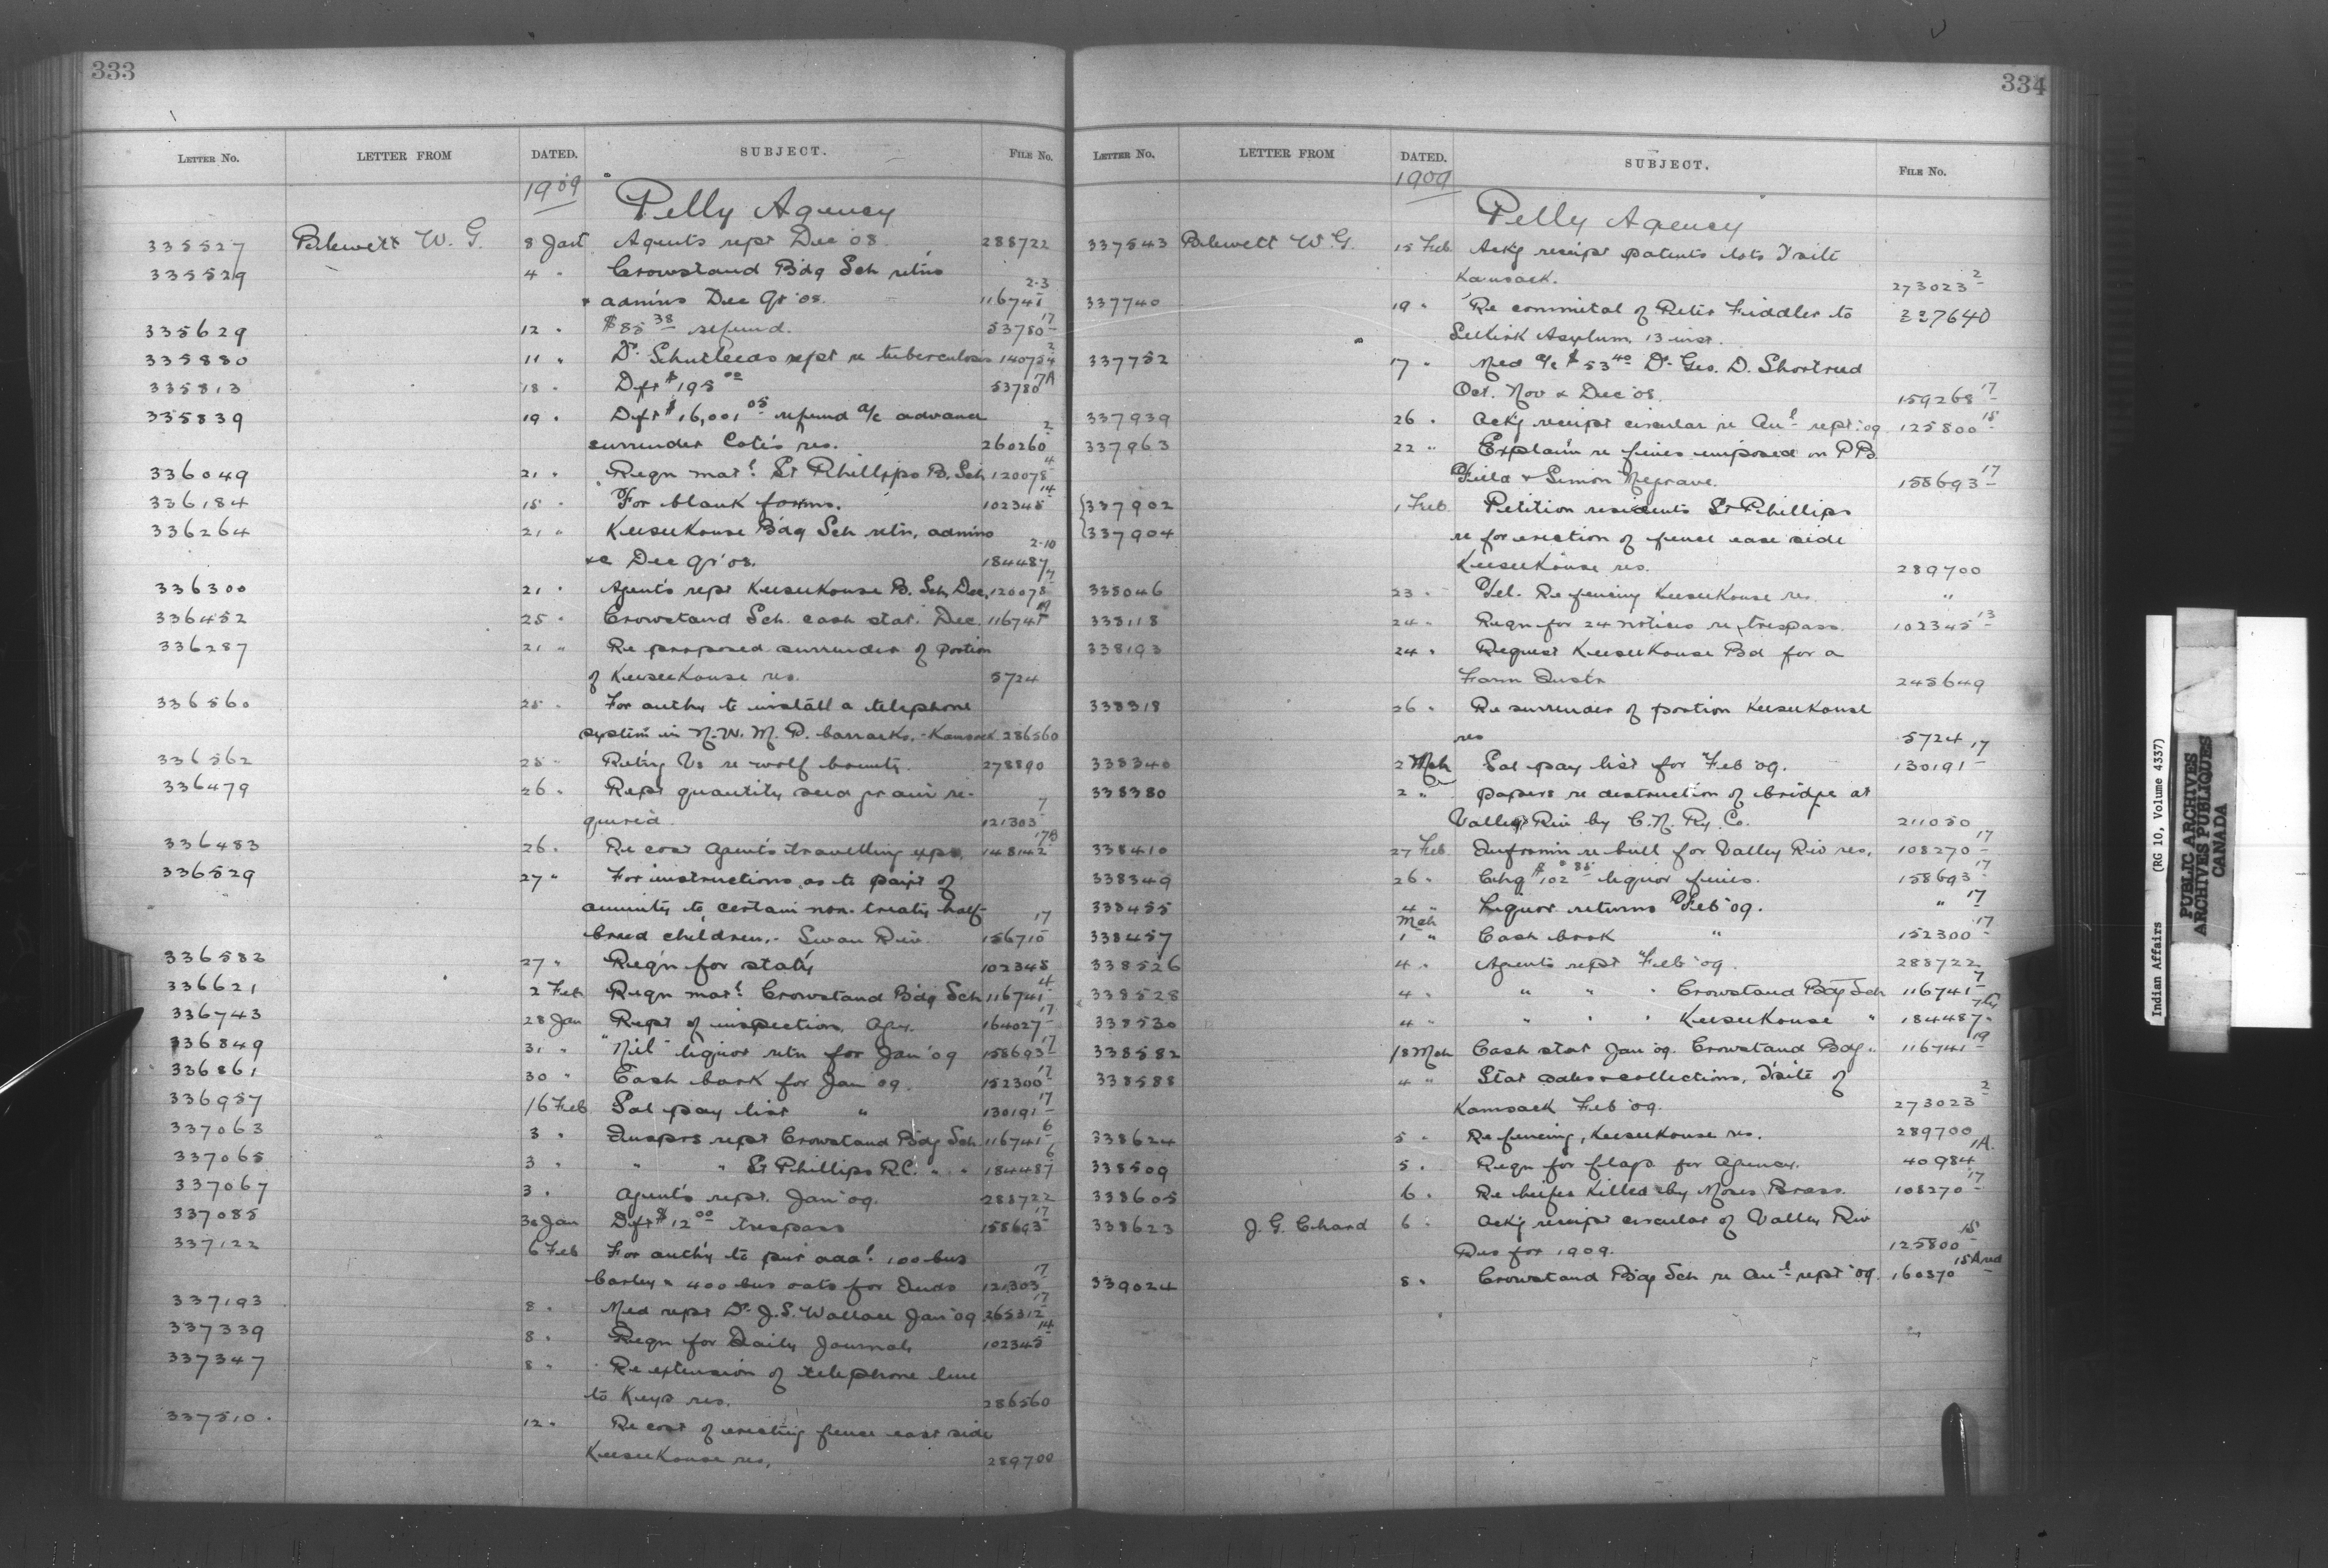 333
LETTER NO. LETTER FROM DATED. SUBJECT. FILE No.
1909 Pelly Agency
335527 Blewett W. G. 8 Jan Agents rept Dec '08. 288722
335529 4 " Crowstand Bdg Sch retns 2-3
& admins Dec Qr '08. 116741
335629 12 " $85 38 refund. 53780 17
335880 11 " Dr. repr re tuberculosis 140754 2
335813 18 " Dft $195 00 53780 17A
335839 19 " Dft $16,001 05 refund a/c advance
surrender Cote's res. 260260 2
336049 21 " Reqn matl. St Phillips B. Sch 120078 4
336184 18 " For blank forms. 102345 14
336264 21 " Keeseekouse Bdg Sch retn, admins
&c Dec Qr '08. 184487 2-10
336300 21 " Agent's rept Keeseekouse B. Sch Dec. 120078 7
336452 25 " Crowstand Sch. cash stat. Dec. 116741 19
336287 21 " Re proposed surrender of portion
of Keeseekouse res. 5724
336560 25 " For authy to install a telephone
system in N.W.M.P. barracks, - Kamsack 286560
336562 25 " Retng Vs re wolf bounty. 278890
336479 26 " Rept quantity seed grain re-
quired 121303 7
336483 26 " Re cost Agent's travelling exps. 148142 17B
336529 27 " For instructions as to paint of
annuity to certain non-treaty half-
breed children, - Swan Riv. 156710 17
336582 27 " Reqn for stat'y 102345
336621 2 Feb Reqn matl. Crowstand Bdg Sch 116741 4
336743 28 Jan Rept of inspection, Agy. 164027 17
336849 31 " "Nil" liquor retn for Jan '09 158693 17
336861 30 " Cash book for Jan '09. 152300 17
336957 16 Feb Sal pay list " 130191 17
337063 3 " Insprs rept Crowstand Bdg Sch 116741 6
337065 3 " " " St Phillips R.C. " " 184487 6
337067 3 " Agent's rept. Jan '09. 288722
337085 30 Jan Dft $12 00 trespass 158693 17
337122 6 Feb For authy to pur addl. 100 bus
barley & 400 bus oats for Inds 121303 17
337193 8 " Med rept Dr. J. S. Wallace Jan '09 265312 17
337339 8 " Reqn for Daily Journals 102345 14
337347 8 " Re extension of telephone line
to Keys res. 286560
337510 12 " Re cost of erecting fence east side
Keeseekouse res, 289700
334
LETTER NO. LETTER FROM DATED. SUBJECT. FILE No.
1909 Pelly Agency
337543 Blewett W. G. 15 Feb Ackg receipt patents lots T'site
Kamsack. 273023 2
337740 19 " Re commital of Peter Fiddler to 227640
Selkirk Asylum, 13 inst.
337752 17 " Med a/c $53 40 Dr. Geo. D. Shortreed
Oct. Nov & Dec '08. 159268 17
337939 26 " Ackg receipt circular re Anl. rept. '09 125800 15
337963 22 " Explain re fines imposed on P B
Field & Simon Megrave. 158693 17
337902 1 Feb Petition residents St Phillips
337904 re for erection of fence east side
Keeseekouse res. 289700
338046 23 " Tel. Re fencing Keeseekouse res. "
338118 24 " Reqn for 24 notices re trespass. 102345 13
338193 24 " Request Keeseekouse Bd for a
Farm Instr 245649
338318 26 " Re surrender of portion Keeseekouse
res 5724
338340 2 Mch Sal pay list for Feb '09. 130191 17
338380 2 " papers re destruction of bridge at
Valley Riv by C. N. Ry. Co. 211050
338410 27 Feb Informn re bull for Valley Riv res. 108270 17
338349 26 " Chq $102 85 liquor fines. 158693 17
338455 4 " Liquor returns Feb '09. " 17
338457 Mch 1 " Cash book " 152300 17
338526 4 " Agents rept Feb '09. 288722
338528 4 " " " " Crowstand Bdg Sch 116741 7
338530 4 " " " " Keeseekouse " 184487
338582 18 Mch Cash stat Jan '09. Crowstand Bdg. 116741 19
338588 4 " Stat sales & collections, T'site of
Kamsack Feb '09. 273023 2
338624 5 " Re fencing, Keeseekouse res. 289700
338509 5 " Reqn for flags for Agency. 40984 1A.
338605 6 " Re beefes killed by Moses Brass. 108270 17
338623 J. G. Chard 6 " Ackg receipt circular of Valley Riv
Res for 1909. 125800 15
339024 8 " Crowstand Bdg Sch re Anl. rept '09. 160370
Indian Affairs (RG 10, Volume 4337)
PUBLIC ARCHIVES
ARCHIVES PUBLIQUES
CANADA